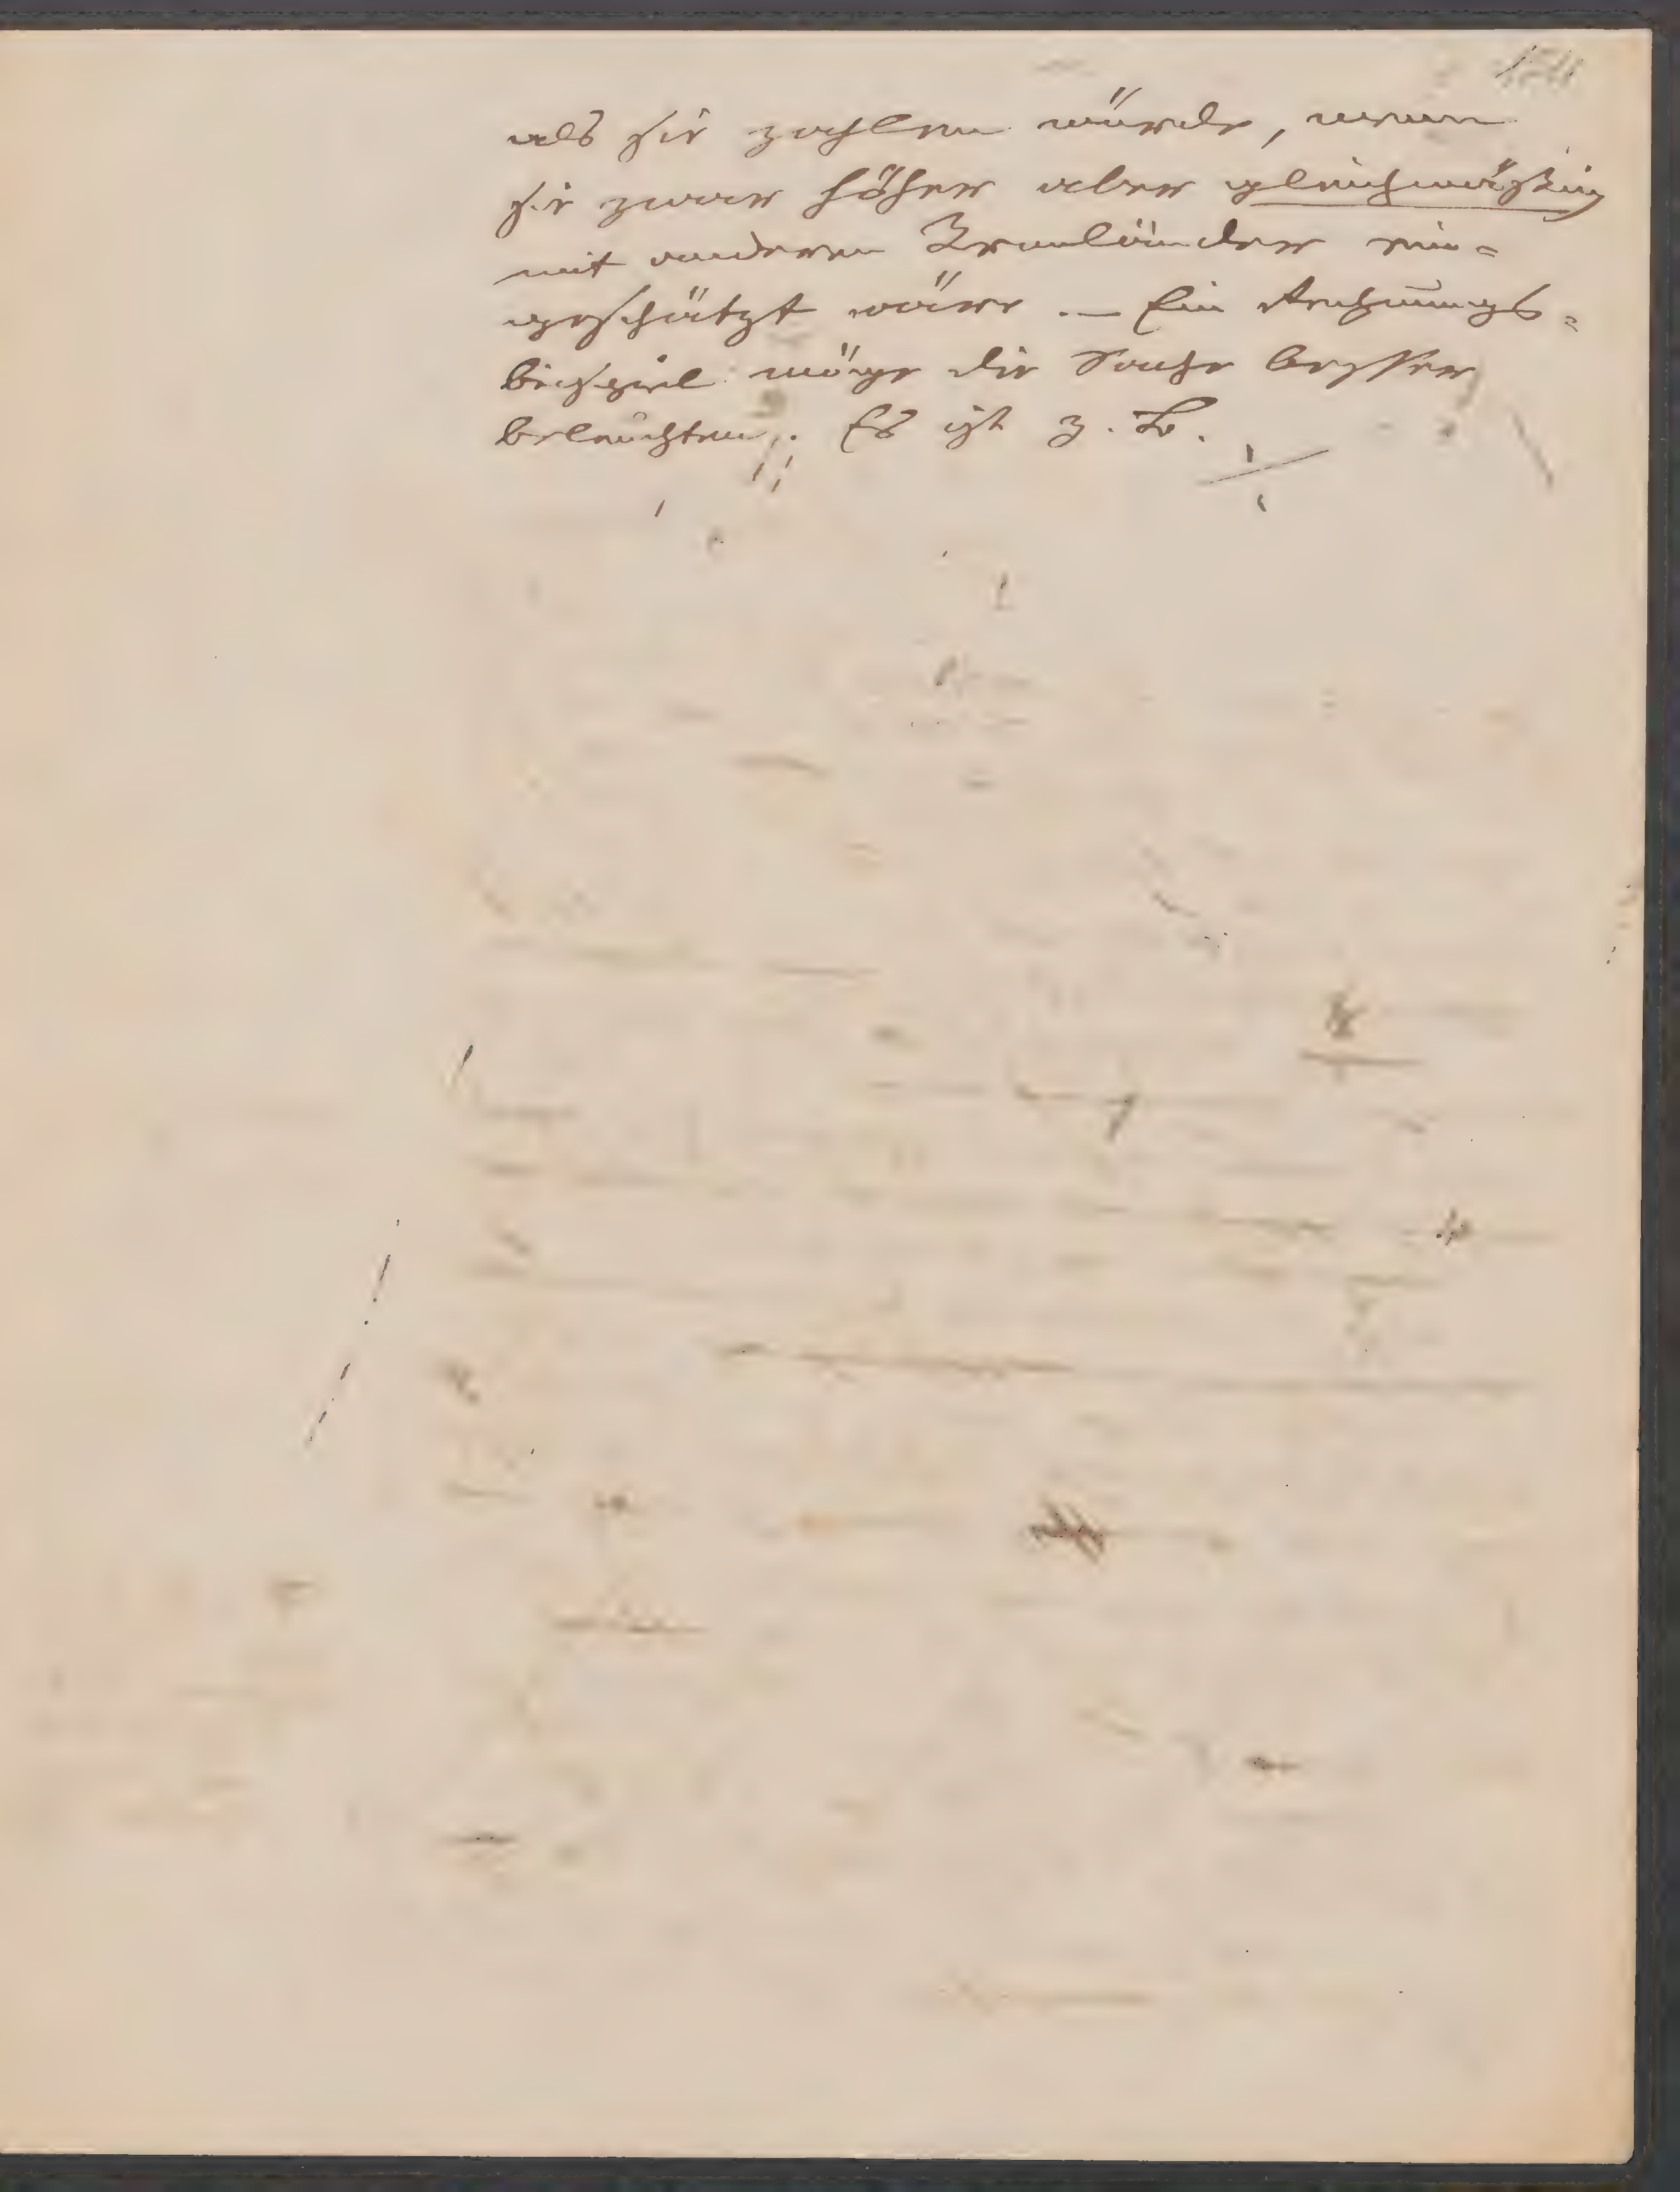 als sie zahlen würde, wenn
sie zwar höher aber gleichmäßig
mit anderen Kronländer ein=
geschätzt wäre. — Ein Rechnungs=
beispiel möge die Sache besser
beleuchten. Es ist z. B.